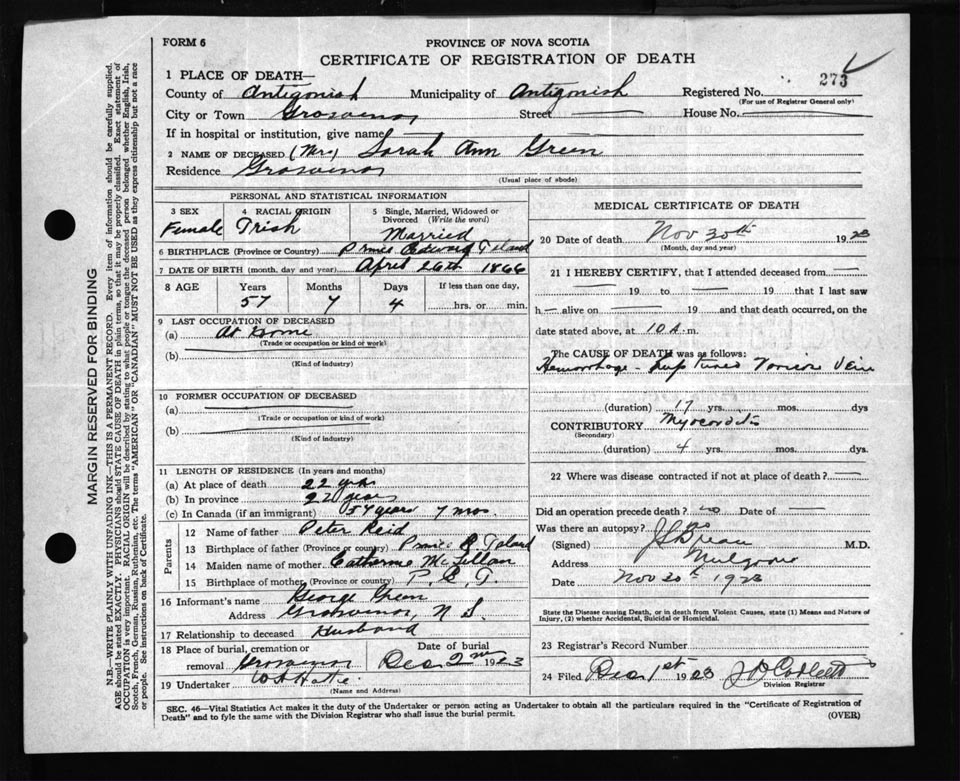 FORM 6
PROVINCE OF NOVA SCOTIA
CERTIFICATE OF REGISTRATION OF DEATH
273
1 PLACE OF DEATH—
County of Antigonish Municipality of Antigonish Registered No.
(For use of Registrar General only)
City or Town Grosvenor Street — House No. —
If in hospital or institution, give name
2 NAME OF DECEASED (Mrs) Sarah Ann Green
Residence Grosvenor
(Usual place of abode)
PERSONAL AND STATISTICAL INFORMATION
3 SEX Female
4 RACIAL ORIGIN Irish
5 Single, Married, Widowed or Divorced (Write the word) Married
6 BIRTHPLACE (Province or Country) Prince Edward Island
7 DATE OF BIRTH (month, day and year) April 26th 1866
8 AGE Years Months Days If less than one day,
57 7 4 hrs. or min.
9 LAST OCCUPATION OF DECEASED
(a) At Home
(Trade or occupation or kind of work)
(b)
(Kind of industry)
10 FORMER OCCUPATION OF DECEASED
(a)
(Trade or occupation or kind of work)
(b)
(Kind of industry)
11 LENGTH OF RESIDENCE (In years and months)
(a) At place of death 22 yrs
(b) In province 22 years
(c) In Canada (if an immigrant) 57 years 7 mos.
Parents
12 Name of father Peter Reid
13 Birthplace of father (Province or country) Prince E Island
14 Maiden name of mother Catherine McLellan
15 Birthplace of mother (Province or country) P. E. I.
16 Informant's name George Green
Address Grosvenor, N S.
17 Relationship to deceased Husband
18 Place of burial, cremation or removal Grosvenor
Date of burial Dec 2nd 1923
19 Undertaker
(Name and Address)
MEDICAL CERTIFICATE OF DEATH
20 Date of death Nov 30th 1923
(Month, day and year)
21 I HEREBY CERTIFY, that I attended deceased from —
— 19 to — 19 that I last saw
h— alive on — 19 and that death occurred, on the
date stated above, at 10 A. m.
The CAUSE OF DEATH was as follows:
Hemorrhage - Ruptured Vein
(duration) 17 yrs. mos. dys
CONTRIBUTORY Myocarditis
(Secondary)
(duration) 4 yrs. mos. dys.
22 Where was disease contracted if not at place of death? —
Did an operation precede death? no Date of —
Was there an autopsy? no
(Signed) M.D.
Address Mulgrave
Date Nov 30th 1923
State the Disease causing Death, or in death from Violent Causes, state (1) Means and Nature of
Injury, (2) whether Accidental, Suicidal or Homicidal.
23 Registrar's Record Number
24 Filed Dec 1st 1923
Division Registrar
SEC. 46—Vital Statistics Act makes it the duty of the Undertaker or person acting as Undertaker to obtain all the particulars required in the "Certificate of Registration of
Death" and to fyle the same with the Division Registrar who shall issue the burial permit.
(OVER)
MARGIN RESERVED FOR BINDING
N.B.—WRITE PLAINLY WITH UNFADING INK—THIS IS A PERMANENT RECORD. Every item of information should be carefully supplied.
AGE should be stated EXACTLY. PHYSICIANS should STATE CAUSE OF DEATH in plain terms, so that it may be properly classified. Exact statement of
OCCUPATION is very important. RACIAL ORIGIN will be described by stating to what people or tongue the deceased person belonged whether English, Irish,
Scotch, French, German, Russian, Ruthenian, etc. The terms "AMERICAN" OR "CANADIAN" MUST NOT BE USED as they express citizenship but not a race
or people. See instructions on back of Certificate.